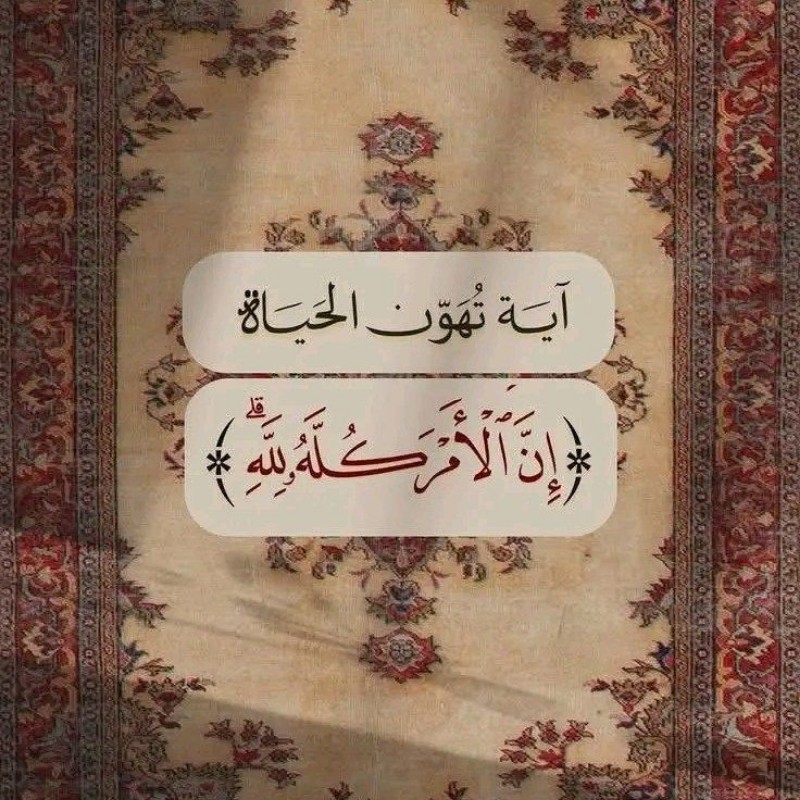 آيَة تُهَوّن الحَيَاة
﴿إِنَّ ٱلْأَمْرَ كُلَّهُۥ لِلَّهِ ۗ﴾